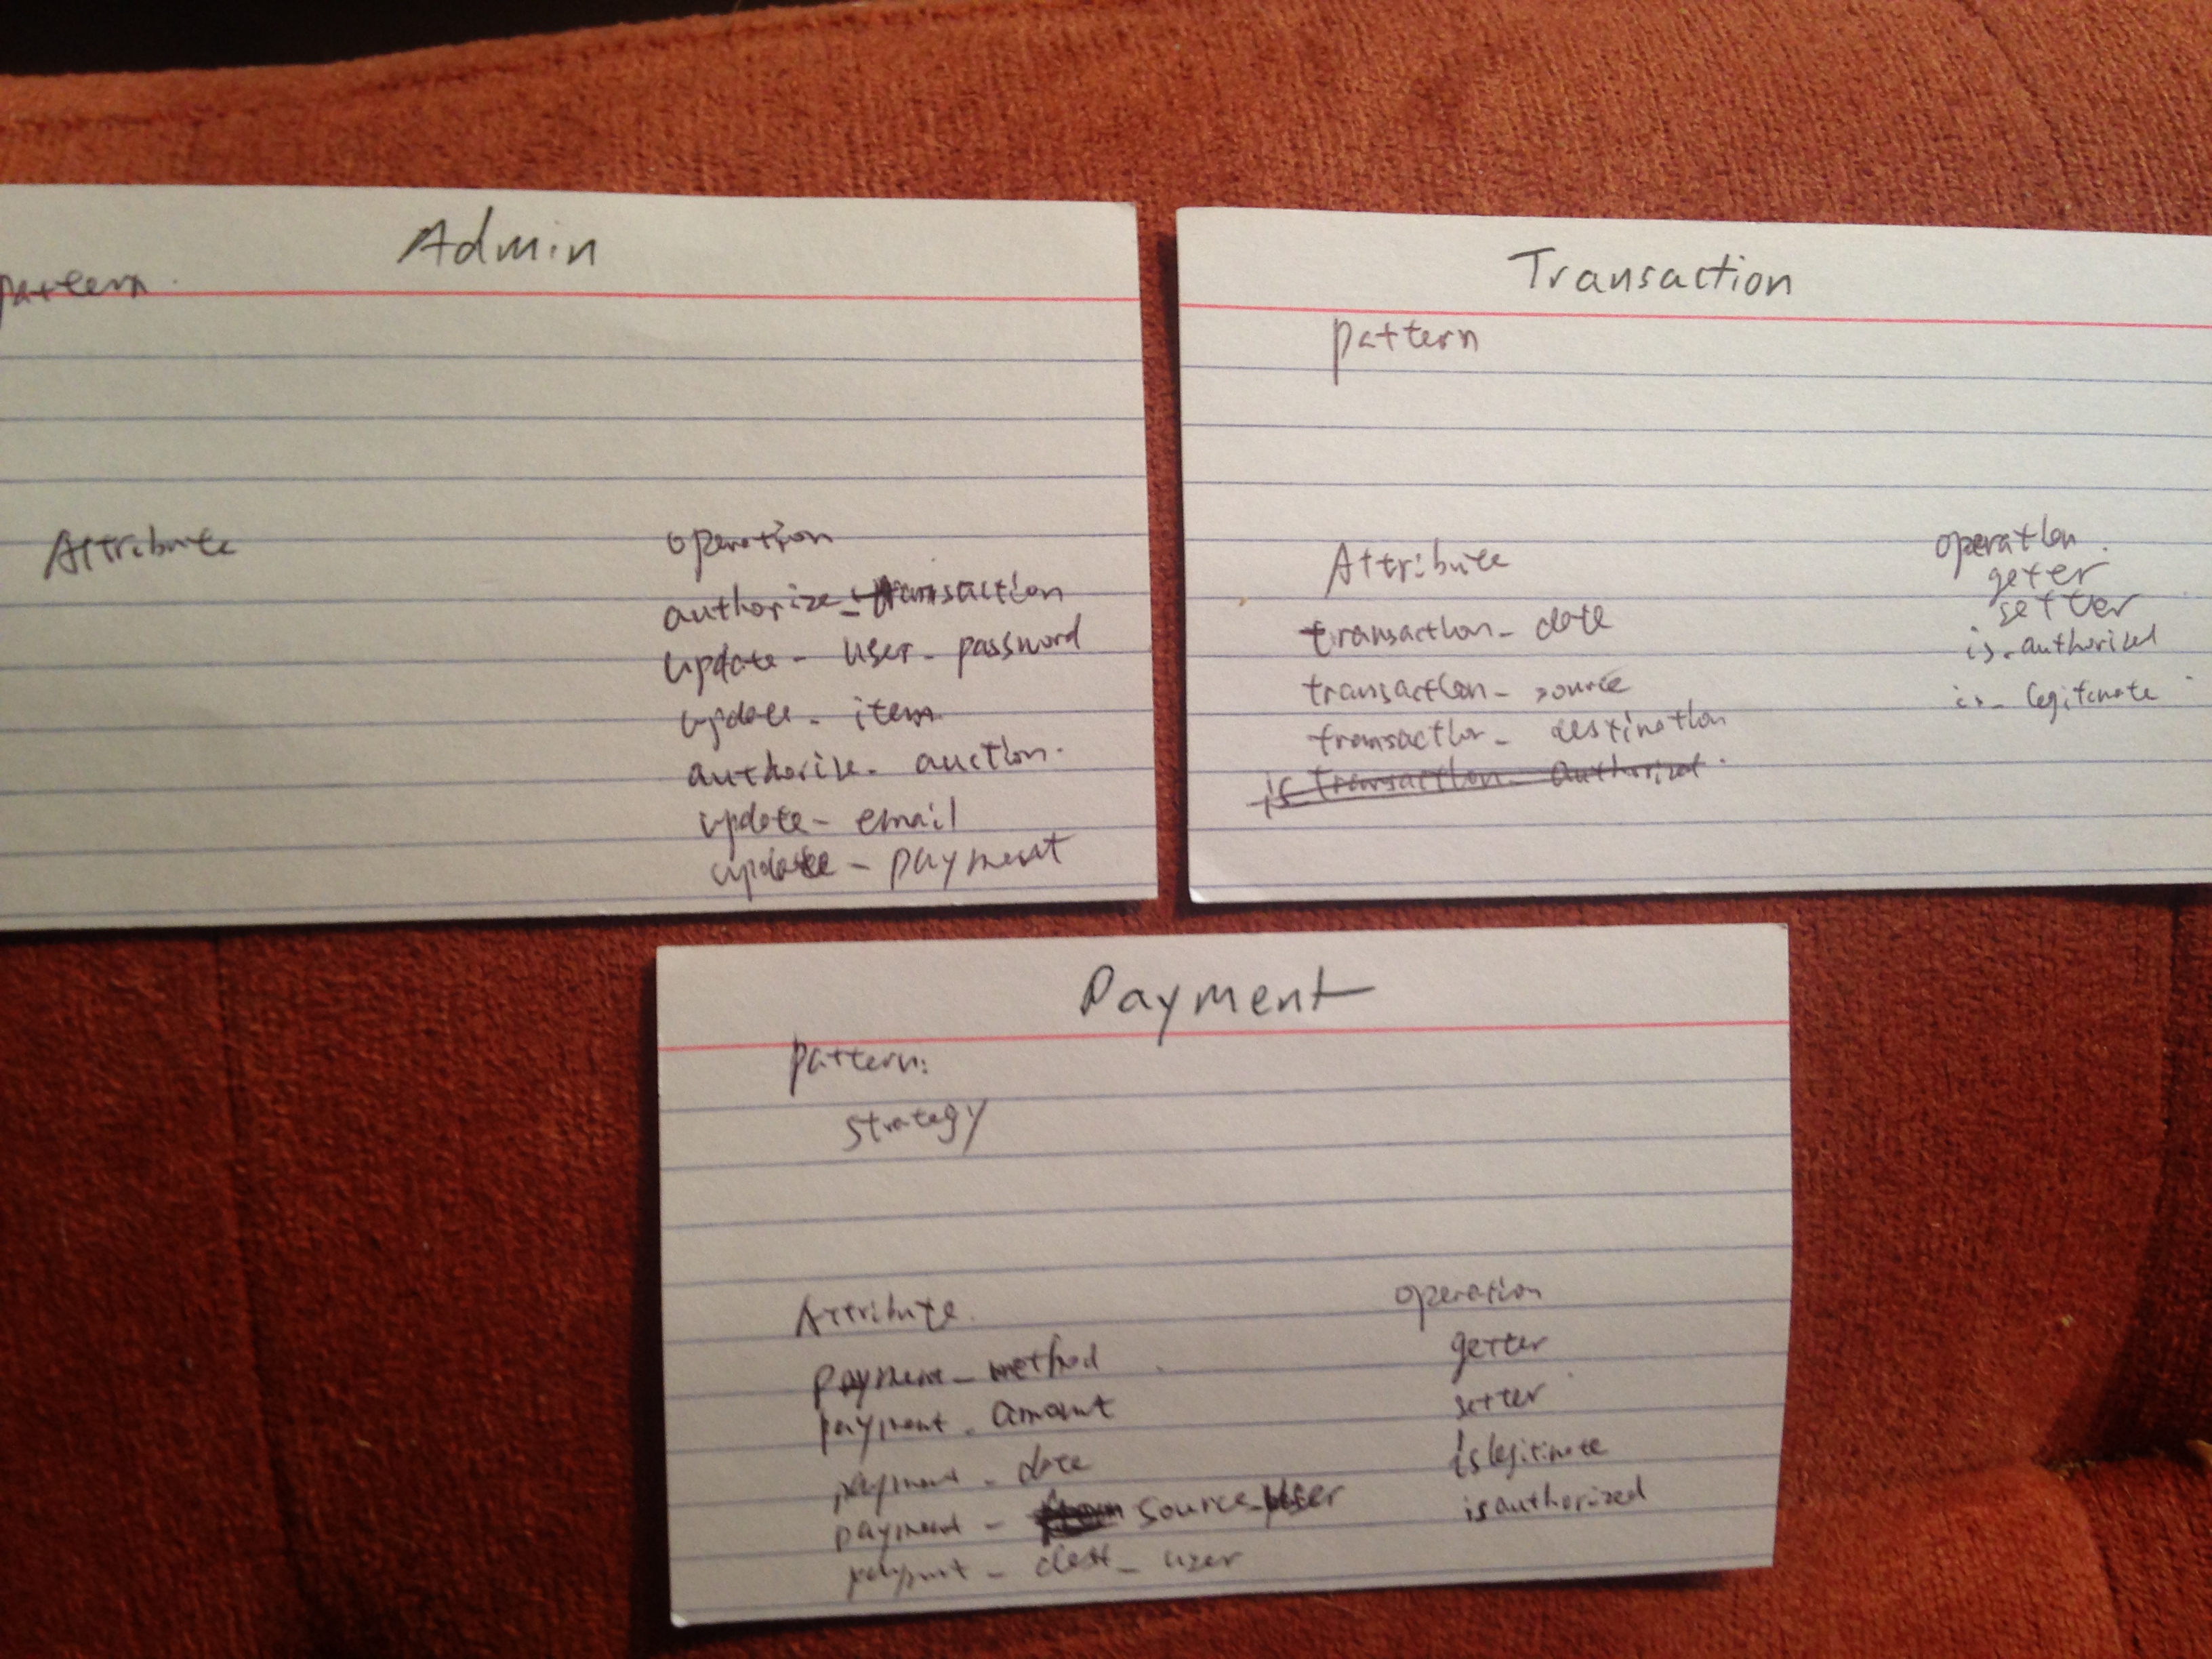 Admin
pattern
Attribute
operation
authorize_transaction
update_user_password
update_item
authorize_auction
update_email
update_payment
Transaction
pattern
Attribute
transaction_date
transaction_source
transaction_destination
is_transaction_authorized
operation
geter
setter
is_authorized
is_legitimate
Payment
pattern:
strategy
Attribute
payment_method
payment_amount
payment_date
payment_source_user
payment_dest_user
operation
getter
setter
islegitimate
isauthorized